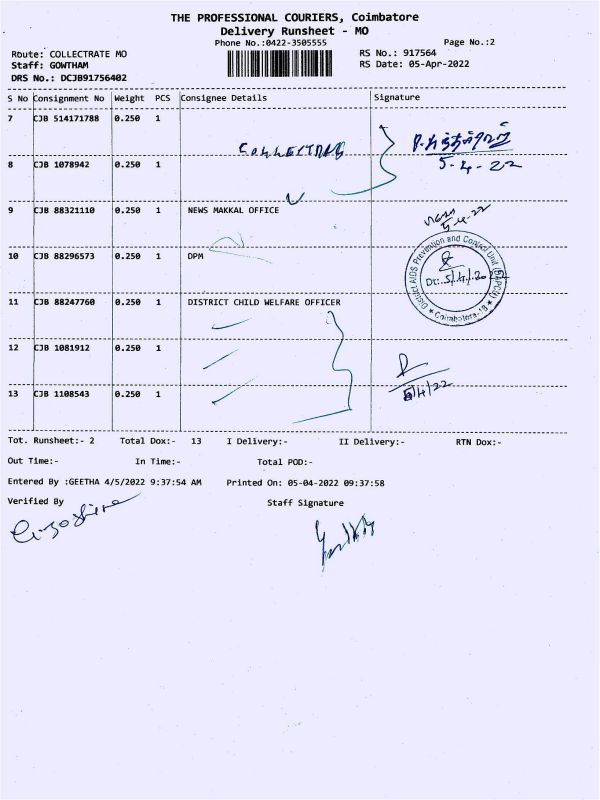 THE PROFESSIONAL COURIERS, Coimbatore
Delivery Runsheet - MO
Phone No.:0422-3505555
Page No.:2
Route: COLLECTRATE MO
RS No.: 917564
Staff: GOWTHAM
RS Date: 05-Apr-2022
DRS No.: DCJB91756402
S No Consignment No Weight PCS Consignee Details Signature
7 CJB 514171788 0.250 1
COLLECTRATE
5-4-22
8 CJB 1078942 0.250 1
9 CJB 88321110 0.250 1 NEWS MAKKAL OFFICE
10 CJB 88296573 0.250 1 DPM
District AIDS Prevention and Control Unit (DAPCU)
Coimbatore-18
11 CJB 88247760 0.250 1 DISTRICT CHILD WELFARE OFFICER
12 CJB 1081912 0.250 1
13 CJB 1108543 0.250 1
5/4/22
Tot. Runsheet:- 2 Total Dox:- 13 I Delivery:- II Delivery:- RTN Dox:-
Out Time:- In Time:- Total POD:-
Entered By :GEETHA 4/5/2022 9:37:54 AM Printed On: 05-04-2022 09:37:58
Verified By Staff Signature